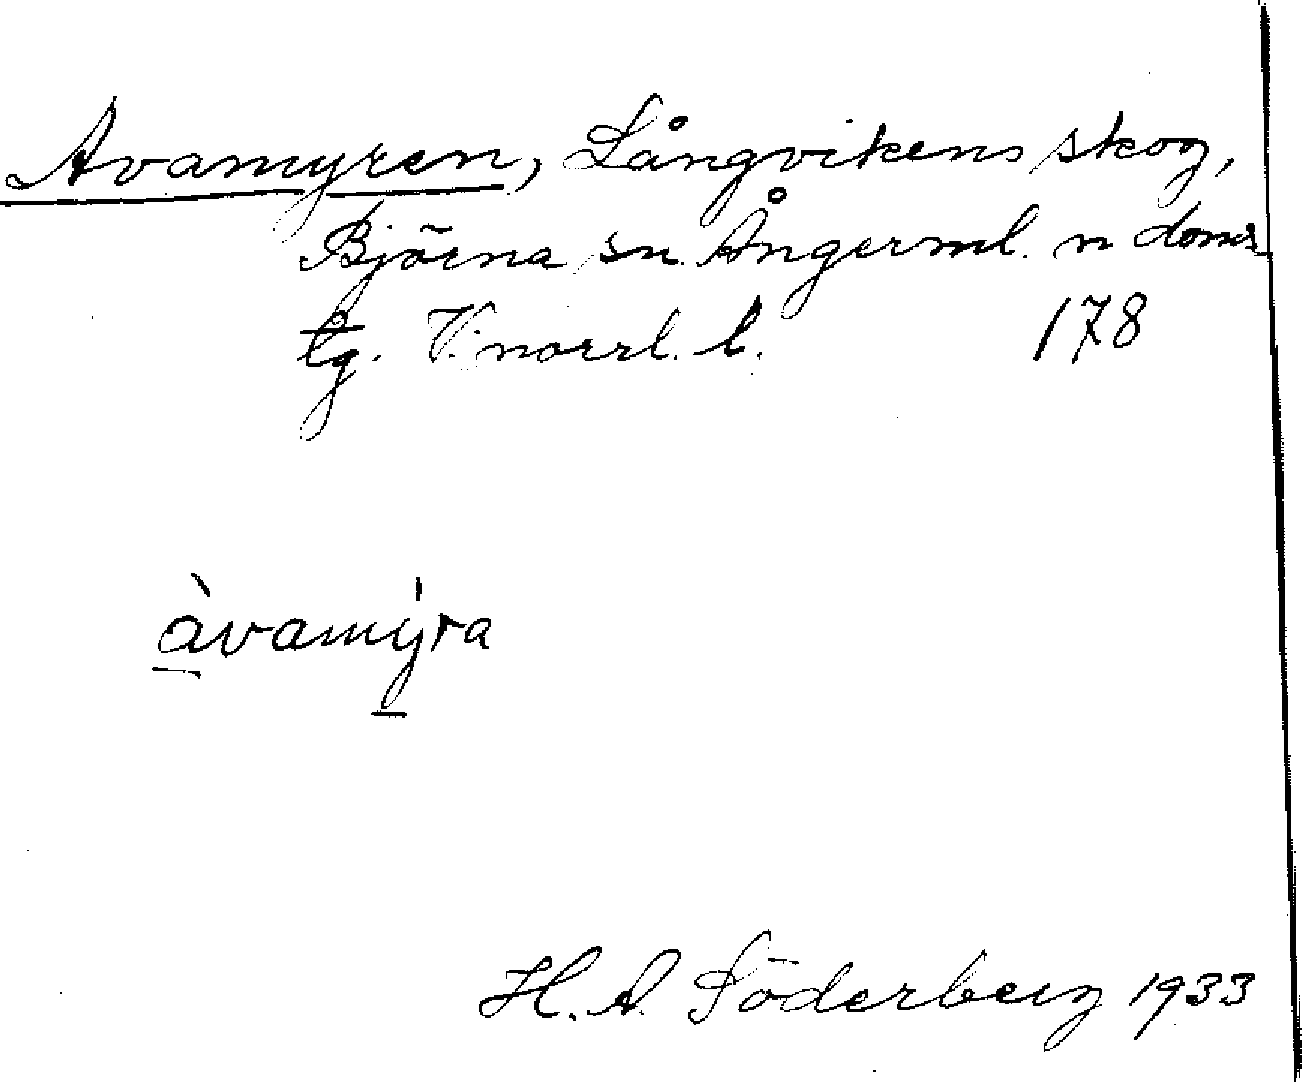 Avamyren, Långvikens skog,
Björna sn. Ångerml. n doms
tg. V. norrl. l. 178
àvamýra
H. A. Söderberg 1933